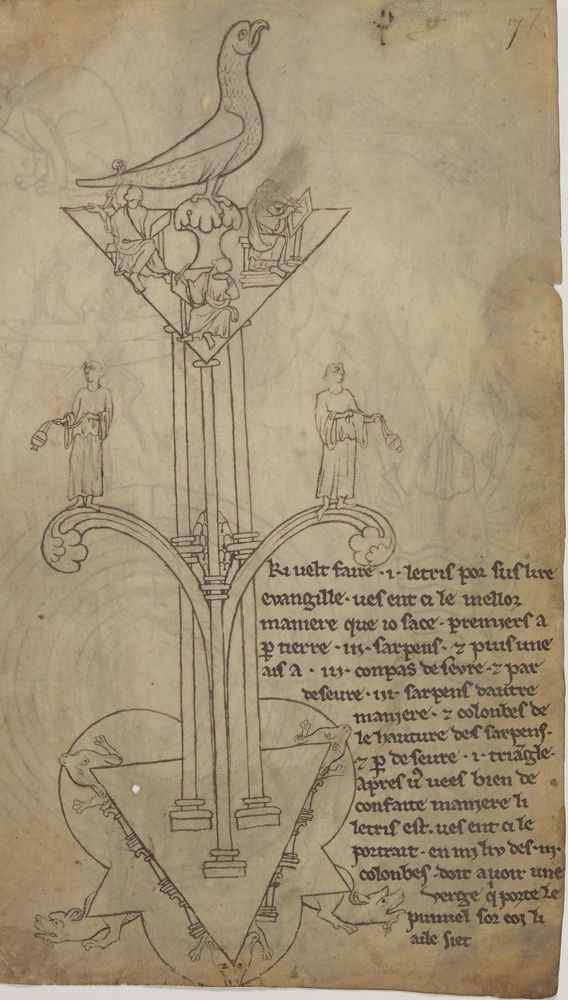 7 7
Ki velt faire · i · letris por sus lire
evangille · ves ent ci le mellor
maniere que io sace · premiers a
p tierre · iii · sarpens · 7 puis une
ais a · iii · compas deseure · 7 par
deseure · iii · sarpens dautre
maniere · 7 colonbes de
le hauture des sarpens ·
7 p deseure · i · triãgle ·
apres vꝯ vees bien de
confaite maniere li
letris est · ves ent ci le
portrait · en mi liv des · iii ·
colonbes doit avoir une
verge q̇ porte le
pumiel sor coi li
aile siet